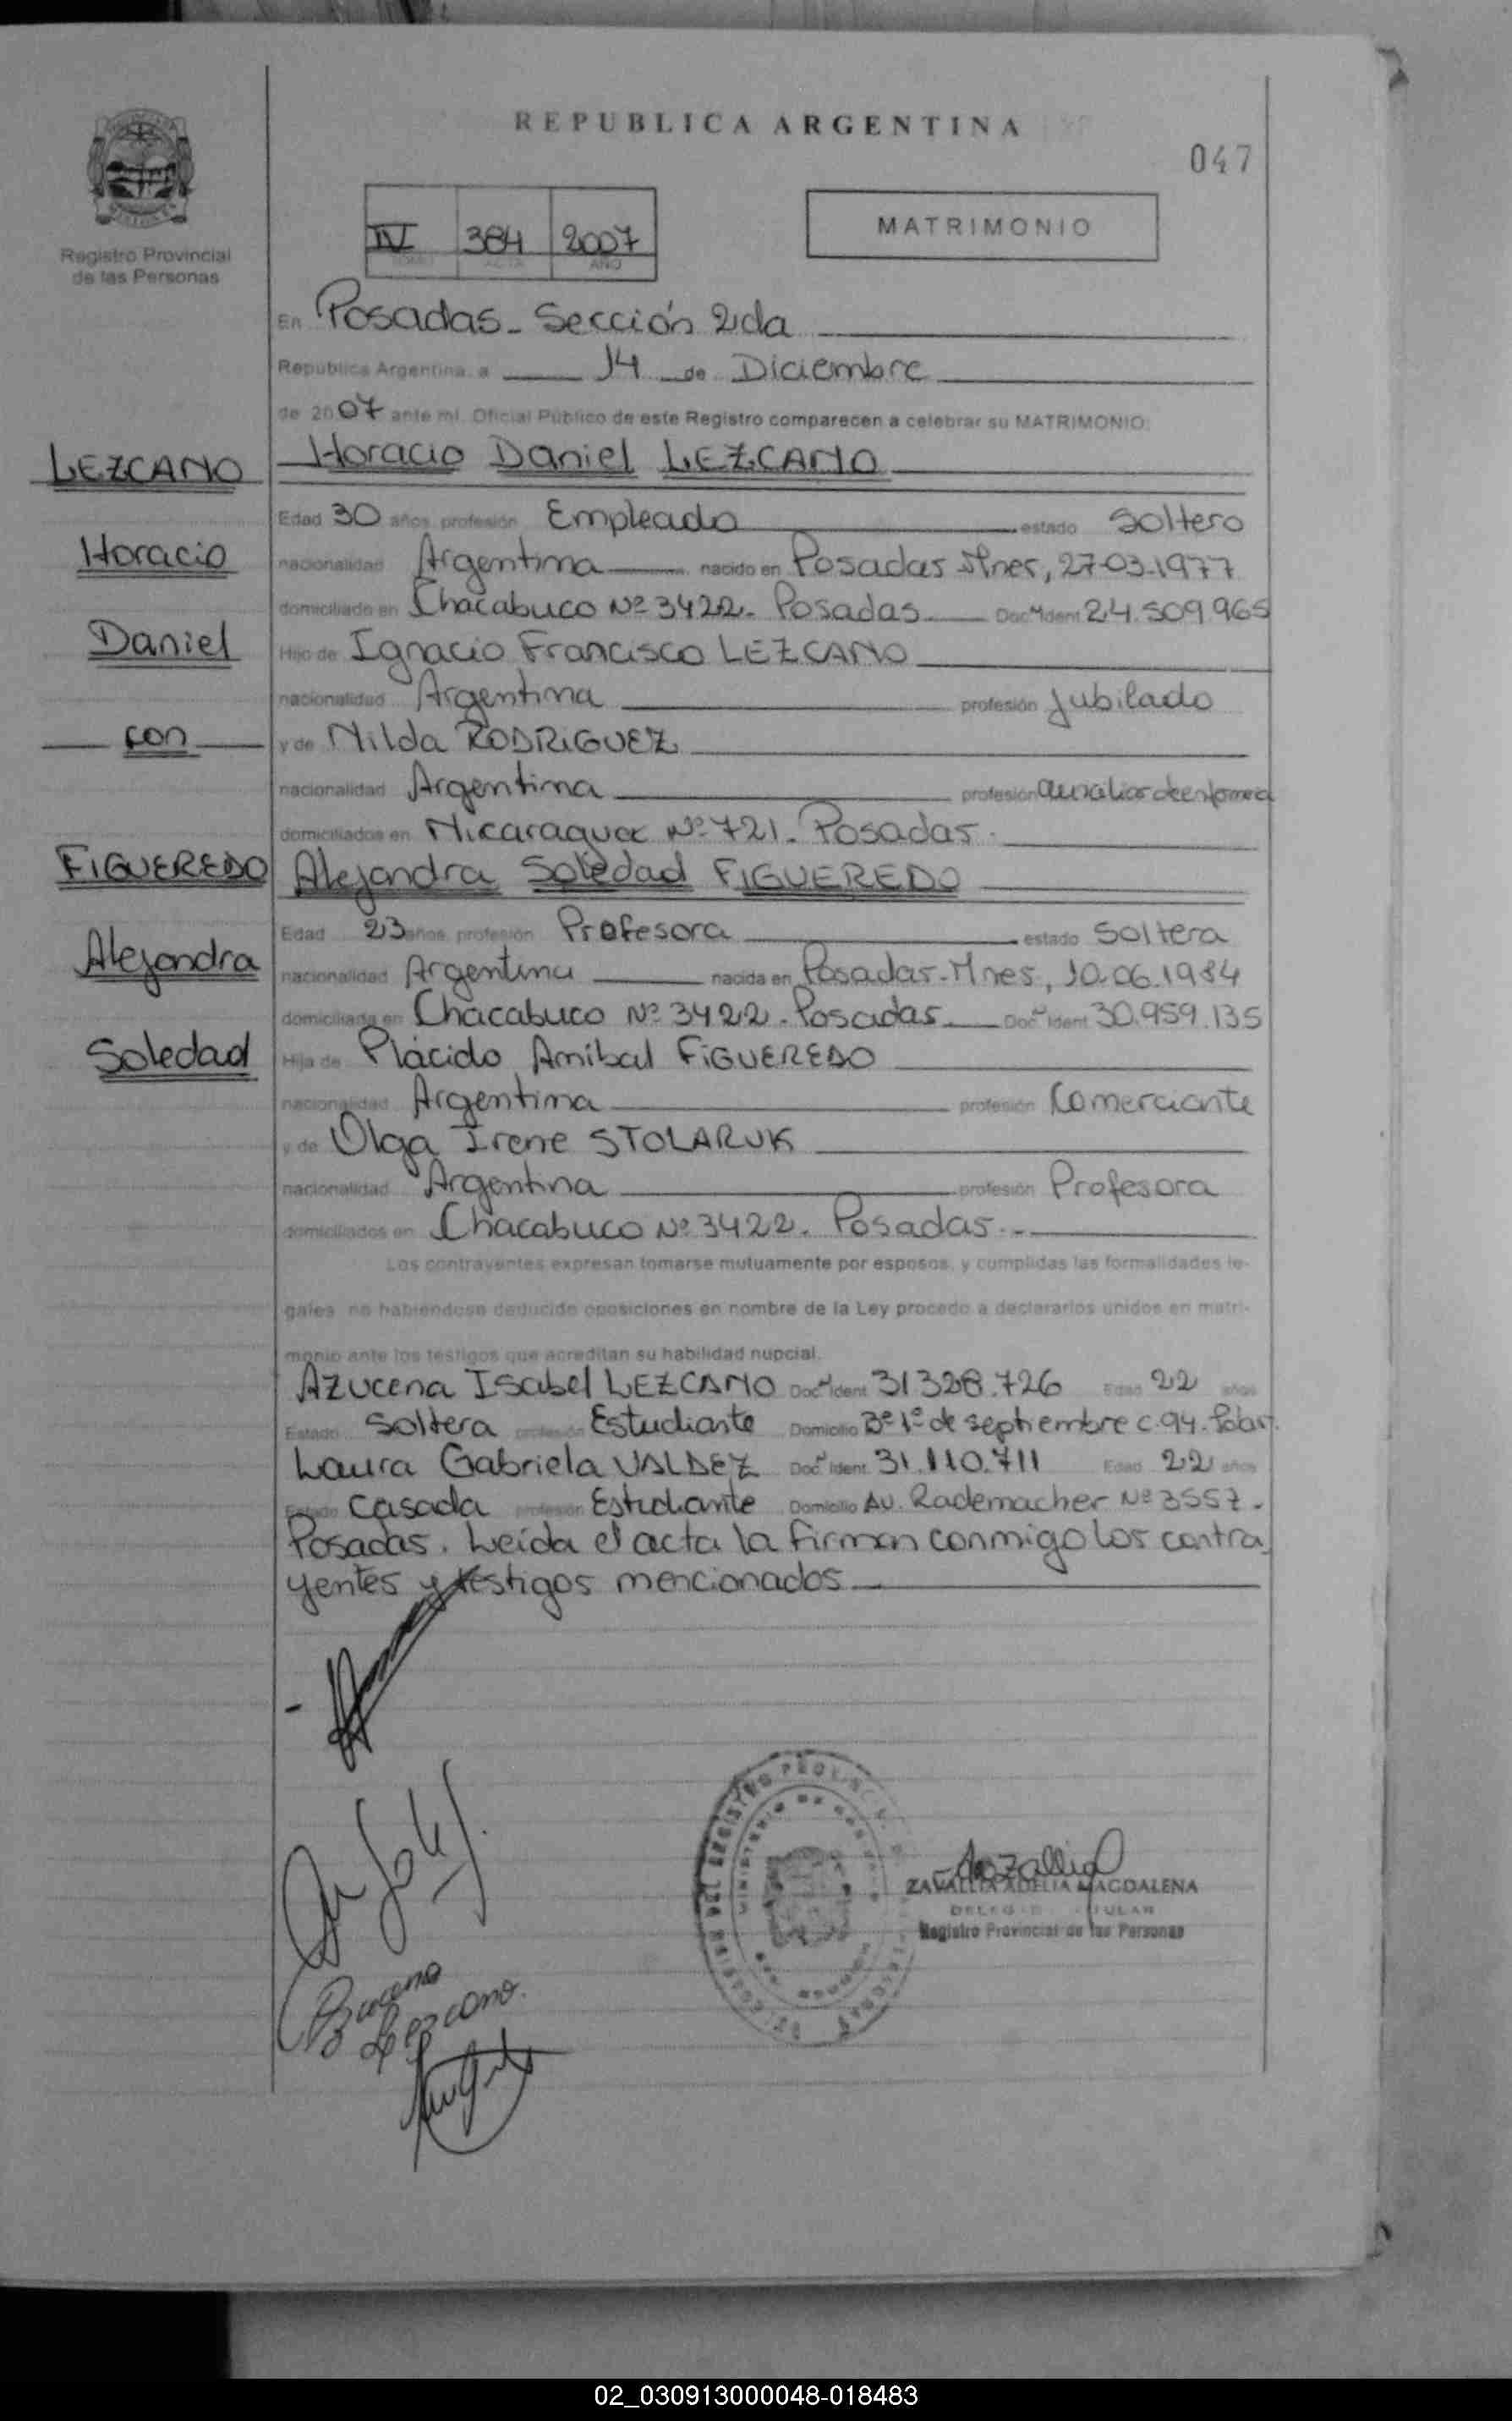 REPUBLICA ARGENTINA
047
Registro Provincial
de las Personas
IV 384 2007
TOMO ACTA AÑO
MATRIMONIO
En Posadas - Sección 2da
Republica Argentina, a 14 de Diciembre
de 2007 ante mi, Oficial Público de este Registro comparecen a celebrar su MATRIMONIO:
LEZCANO
Horacio Daniel LEZCANO
Edad 30 años profesión Empleado estado Soltero
Horacio
nacionalidad Argentina nacido en Posadas Mnes, 27-03-1977
domiciliado en Chacabuco Nº 3422. Posadas Doc. Ident 24.509.965
Daniel
Hijo de Ignacio Francisco LEZCANO
nacionalidad Argentina profesión Jubilado
con
y de Nilda RODRIGUEZ
nacionalidad Argentina profesión auxiliar de
domiciliados en Nicaragua Nº 721. Posadas.
FIGUEREDO
Alejandra Soledad FIGUEREDO
Edad 23 años profesión Profesora estado Soltera
Alejandra
nacionalidad Argentina nacida en Posadas-Mnes, 10.06.1984
domiciliada en Chacabuco Nº 3422. Posadas Doc. Ident 30.959.135
Soledad
Hija de Plácido Anibal FIGUEREDO
nacionalidad Argentina profesión Comerciante
y de Olga Irene STOLARUK
nacionalidad Argentina profesión Profesora
domiciliados en Chacabuco Nº 3422. Posadas.
Los contrayentes expresan tomarse mutuamente por esposos, y cumplidas las formalidades le-
gales no habiendose deducido oposiciones en nombre de la Ley procedo a declararlos unidos en matri-
monio ante los testigos que acreditan su habilidad nupcial.
Azucena Isabel LEZCANO Doc. Ident 31328.726 Edad 22 años
Estado Soltera profesión Estudiante Domicilio Bº 1º de septiembre c.94.
Laura Gabriela VALDEZ Doc. Ident. 31.110.711 Edad 22 años
Estado Casada profesión Estudiante Domicilio Av. Rademacher Nº 3557.
Posadas. Leída el acta la firman conmigo los contra
yentes y testigos mencionados
Azucena
Lezcano.
ZAVALLIA ADELIA MAGDALENA
TITULAR
Registro Provincial de las Personas
02_030913000048-018483